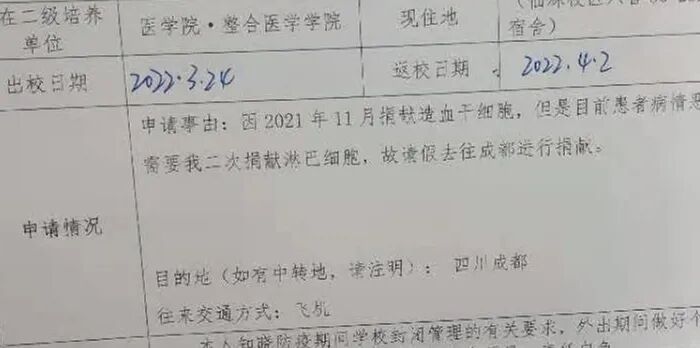 在二级培养
单位
医学院·整合医学学院
现住地
宿舍)
出校日期
2022.3.24
返校日期
2022.4.2
申请情况
申请事由：因2021年11月捐献造血干细胞，但是目前患者病情恶
需要我二次捐献淋巴细胞，故请假去往成都进行捐献。
目的地（如有中转地，请注明）： 四川成都
往来交通方式：飞机
本人知晓防疫期间学校封闭管理的有关要求，外出期间做好个